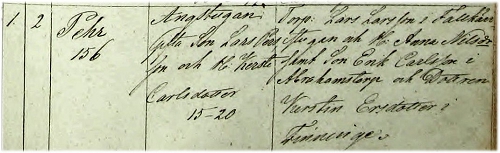 1. 2 Pehr 156
Ång
gifta Son Lars Pers
son och H. Kerstin
Carlsdotter
15-20
Torp: Lars Larsson i
stugan och H. Anna Nilsdr
samt Son Erik Carlsson i
Abrahamstorp och Dottren
Kerstin Ersdotter i
Finninge.